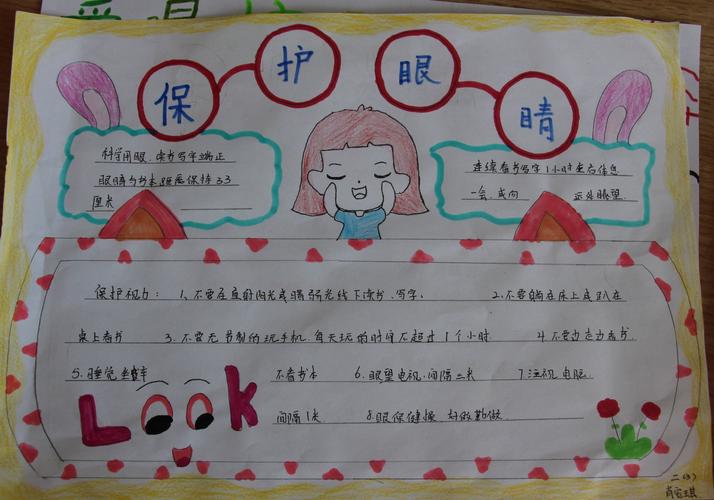 保护眼睛
科学用眼.读书写字端正
眼睛与书本距离保持33
厘米
连续看书写字1小时左右休息
一会.或向 远处眺望.
保护视力: 1、不要在直射阳光或暗弱光线下读书、写字; 2.不要躺在床上或趴在
桌上看书 3、不要无节制的玩手机.每天玩的时间不超过1个小时. 4.不要边走边看书.
5.睡觉坐车 不看书本 6.眼望电视.间隔三米 7.注视电脑.
间隔1米 8.眼保健操.好好勤做
LOOK
二(3)